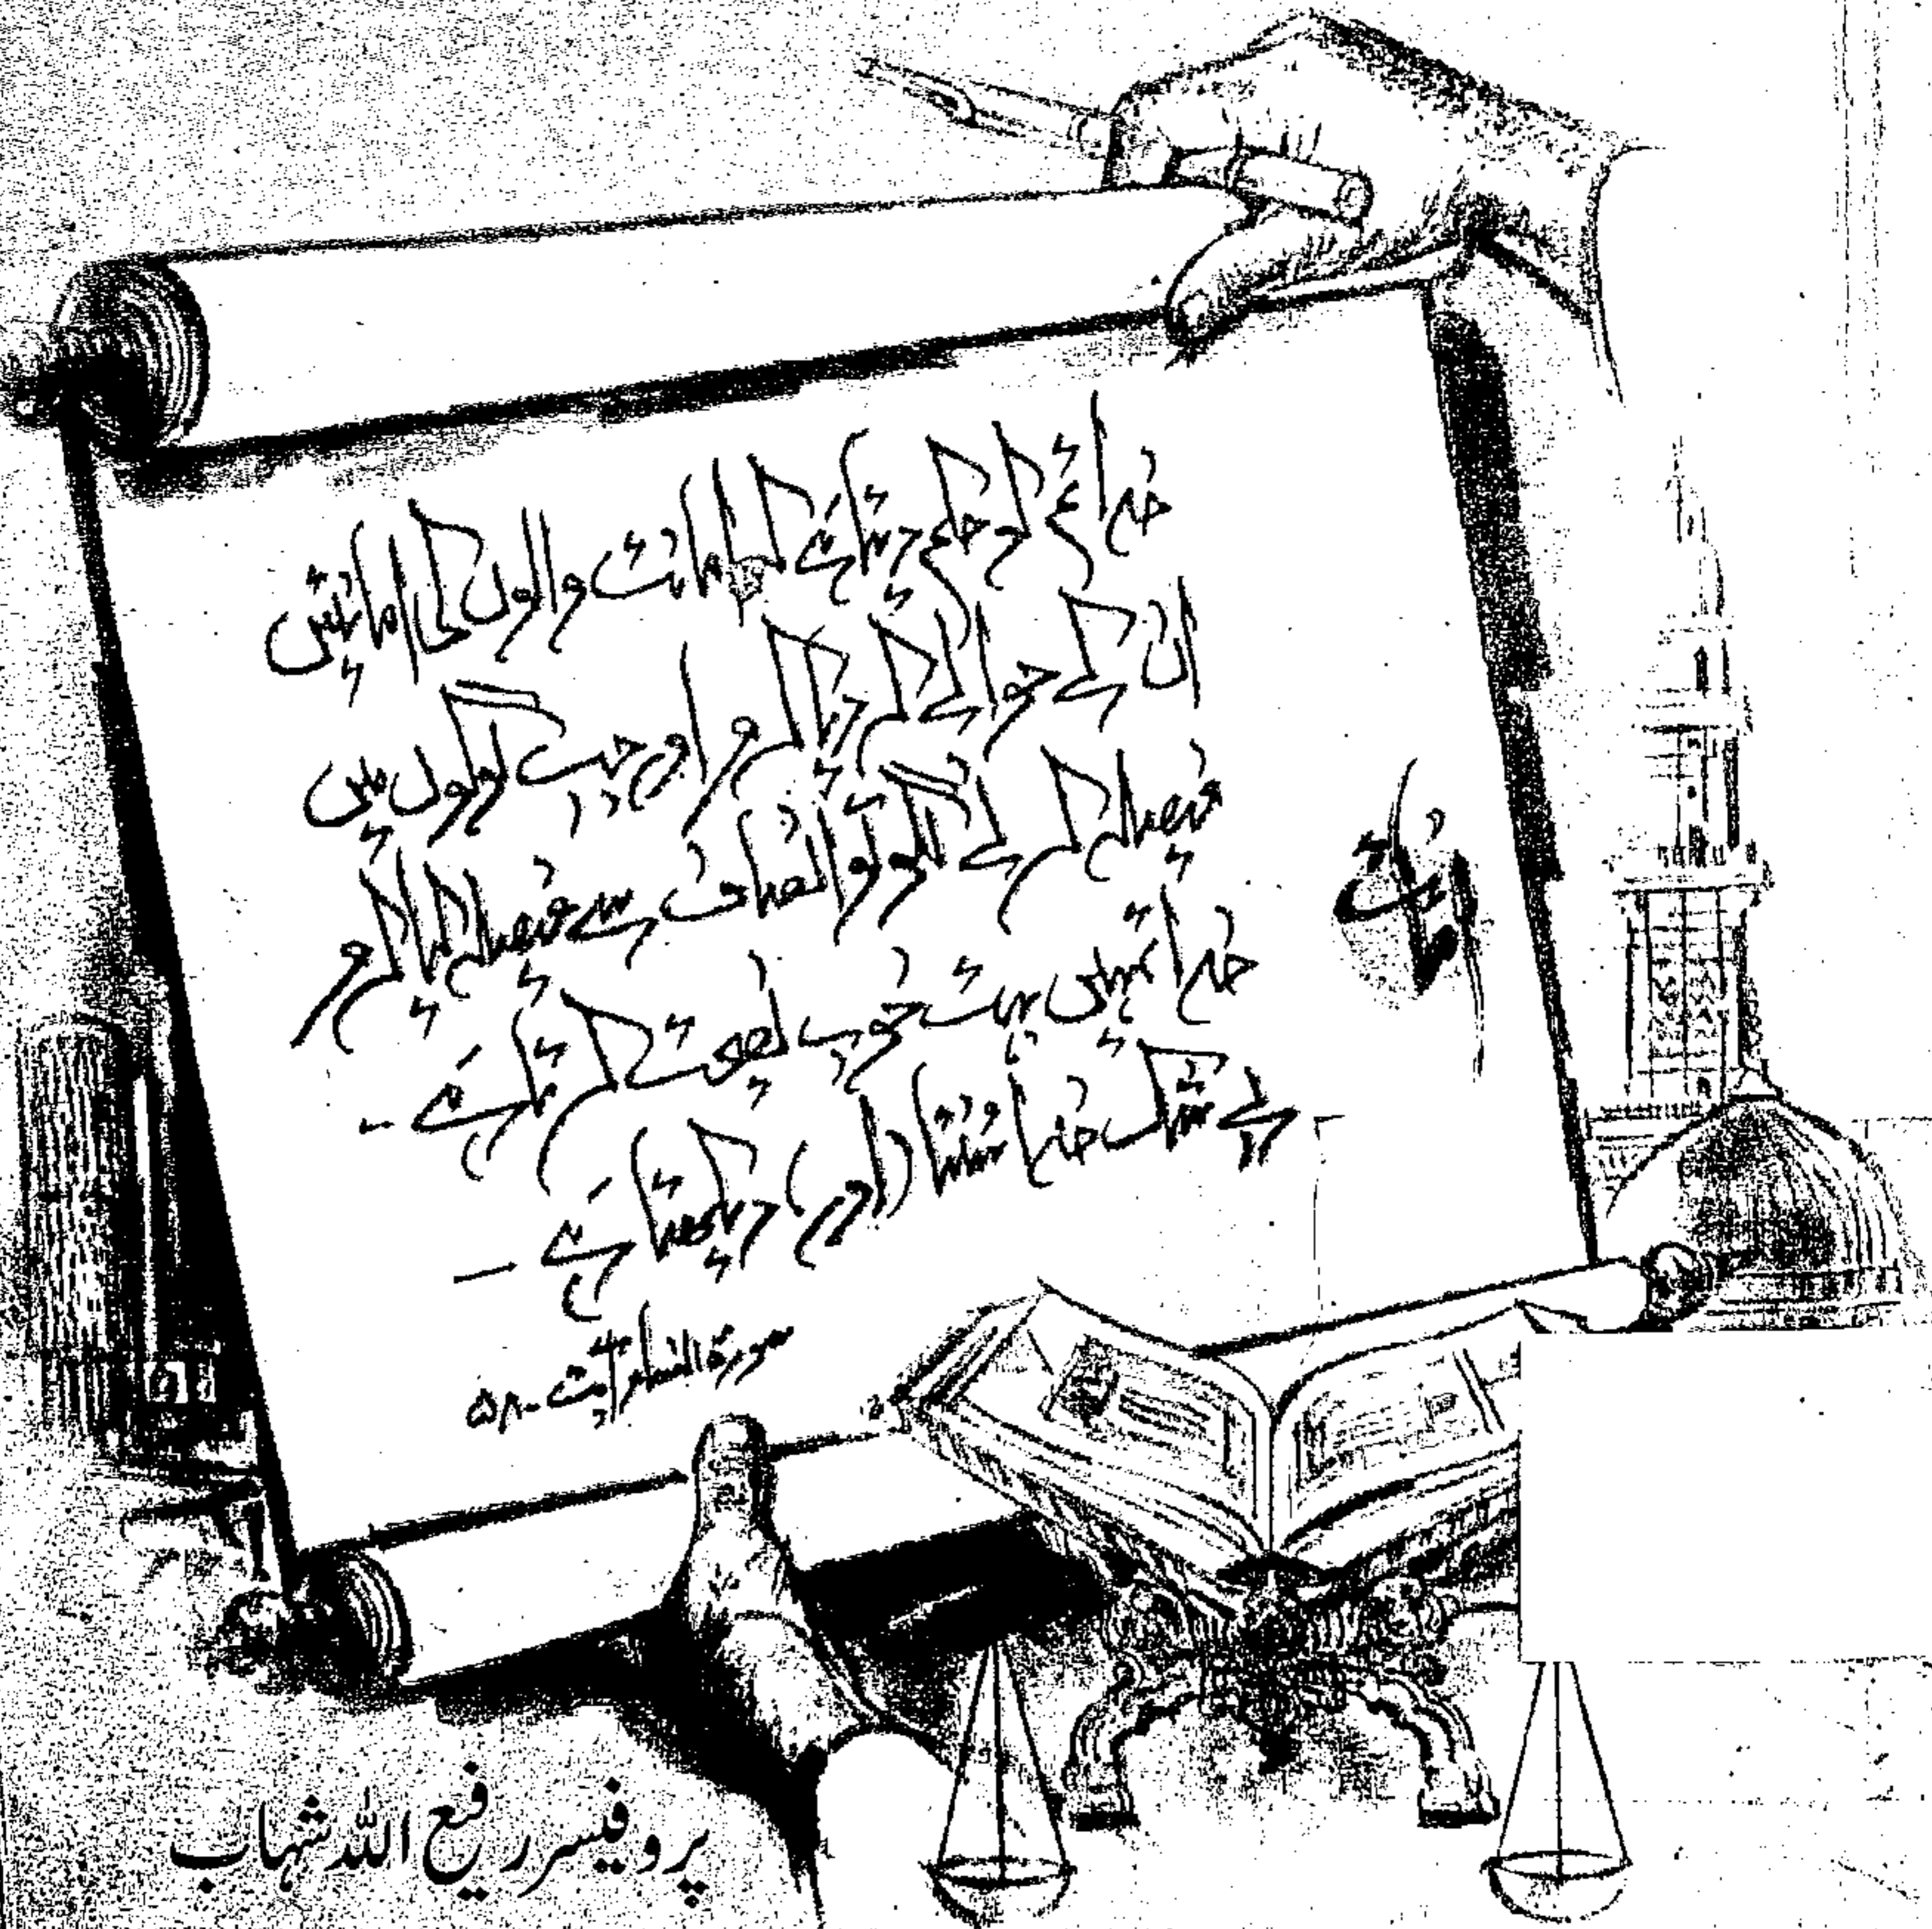 خدا تم کو حکم دیتا ہے کہ امانت والوں کی امانتیں
ان کے حوالے کر دیا کرو اور جب لوگوں میں
فیصلہ کرنے لگو تو انصاف سے فیصلہ کیا کرو
خدا تمہیں بہت خوب نصیحت کرتا ہے ۔
بے شک خدا سنتا (اور) دیکھتا ہے ۔
سورۃ النساء آیت ۔ ۵۸
پروفیسر رفیع اللہ شہاب